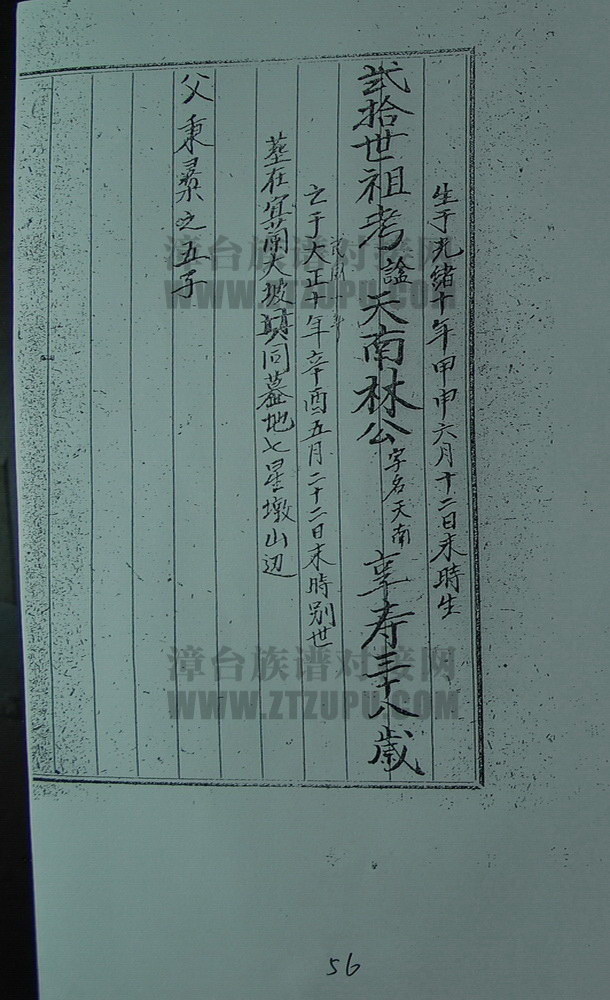 生于光绪十年甲申六月十二日未時生
弍拾世祖考諡天南林公字名天南享寿三十八歲
亡于大正十年辛酉五月二十二日未時别世
葬在宜蘭大坡共同墓地七星墩山辺
父秉彝之五子
漳台族谱对接网
WWW.ZTZUPU.COM
漳台族谱对接网
WWW.ZTZUPU.COM
56